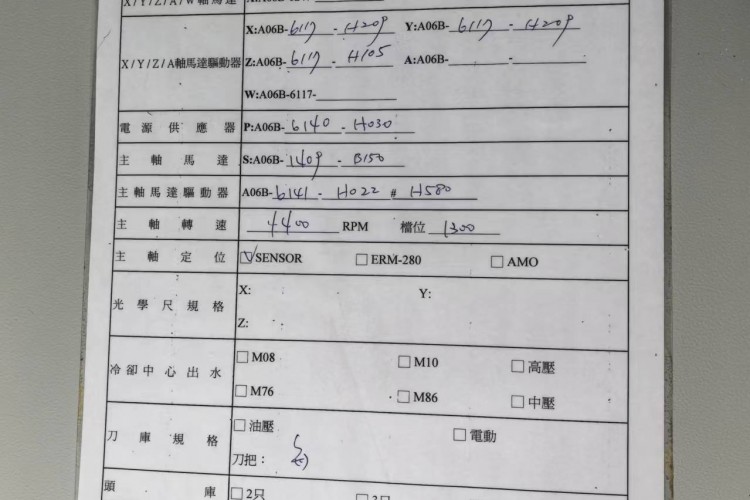 X:A06B-6117-H209 Y:A06B-6117-H209
X/Y/Z/A軸馬達驅動器 Z:A06B-6117-H105 A:A06B-
W:A06B-6117-
電源供應器 P:A06B-6140-H030
主軸馬達 S:A06B-1409-B150
主軸馬達驅動器 A06B-6141-H022#H580
主軸轉速 4400 RPM 檔位 1300
主軸定位 ☑SENSOR □ERM-280 □AMO
光學尺規格 X: Y:
Z:
冷卻中心出水 □M08 □M10 □高壓
□M76 □M86 □中壓
刀庫規格 □油壓 □電動
刀把：
頭庫 □2只